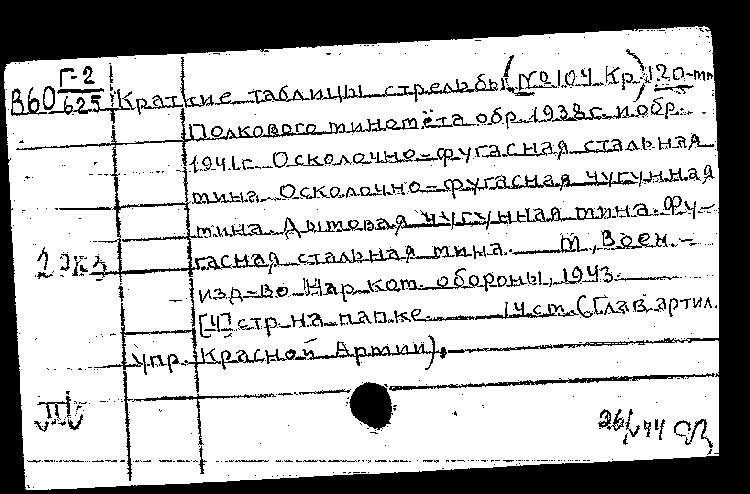 В60 Г-2/625 Краткие таблицы стрельбы (№104 Кр) 120-мм
Полкового миномёта обр. 1938г. и обр.
1941г. Осколочно-фугасная стальная
мина. Осколочно-фугасная чугунная
мина. Дымовая чугунная мина. Фу-
гасная стальная мина. М., Воен.-
2 экз
изд-во Нар. ком. обороны, 1943.
[4] стр. на папке. 14 см. (Глав. артил.
упр. Красной Армии).
26/V 44